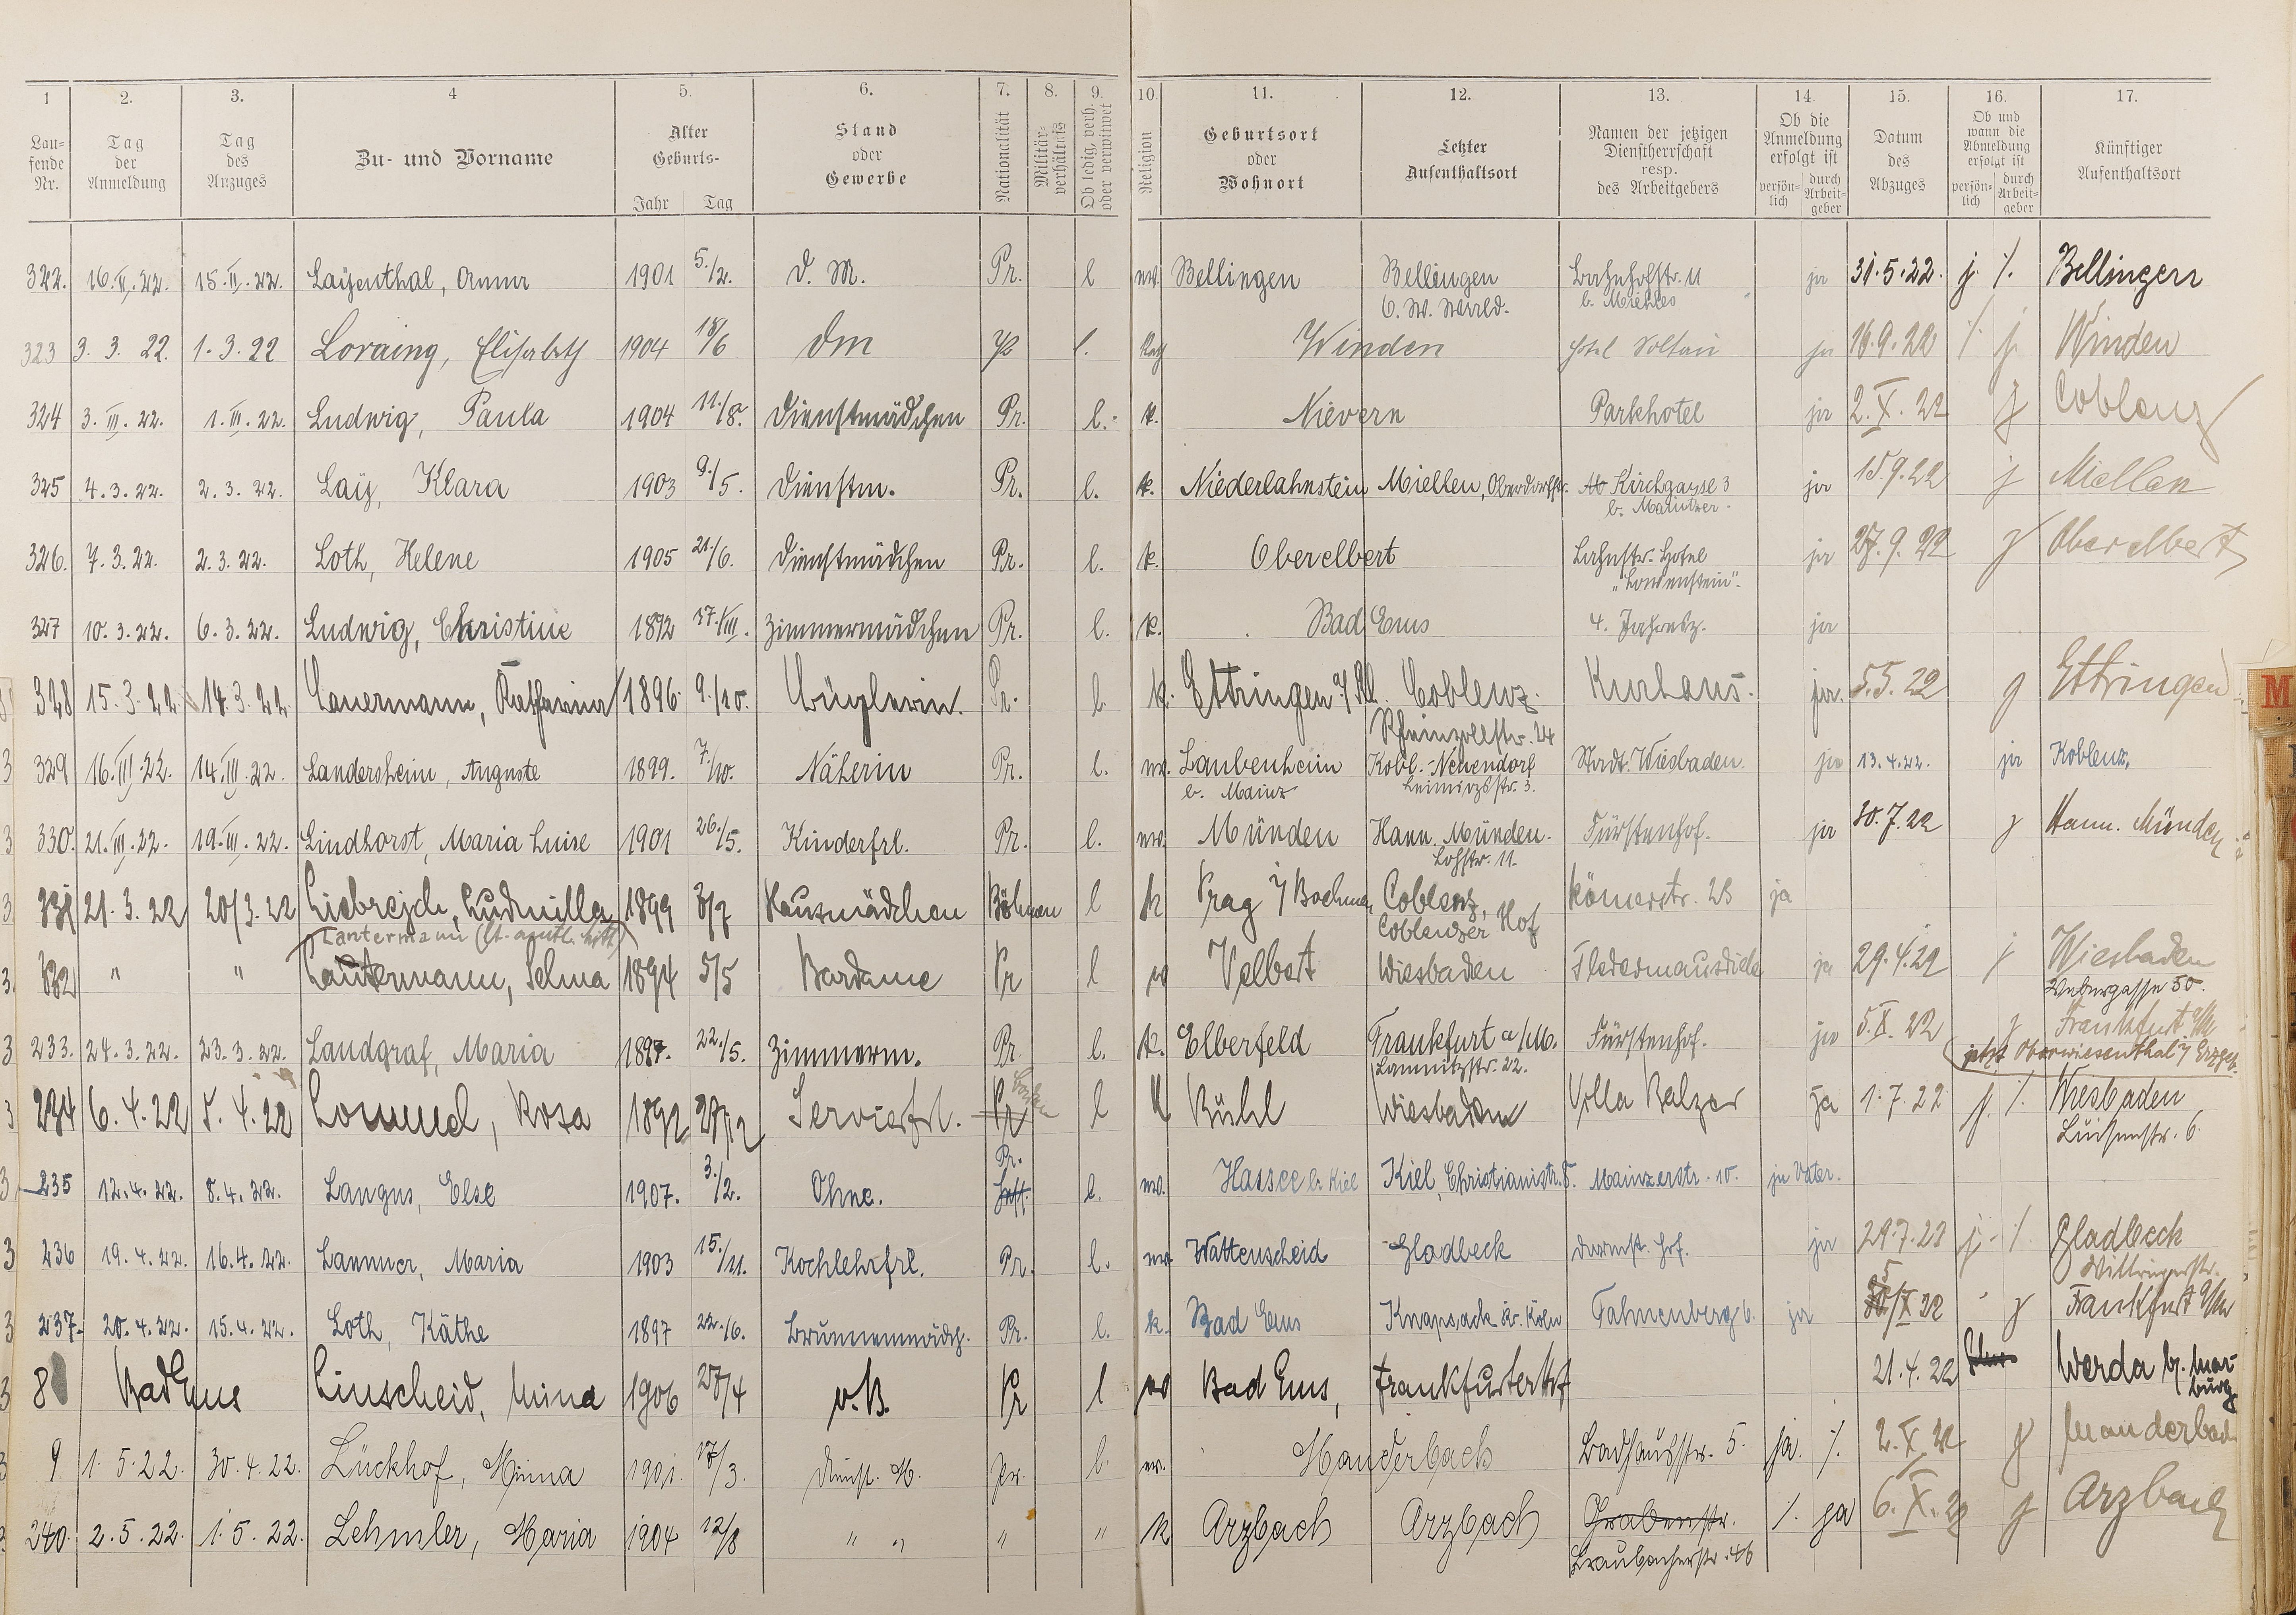 1 2. 3. 4 5. 6. 7. 8. 9. 10. 11. 12. 13. 14. 15. 16. 17.
Laufende Nr. Tag der Anmeldung Tag des Anzuges Zu- und Vorname Alter Geburts- Jahr Tag Stand oder Gewerbe Nationalität Militärverhältnis Ob ledig, verh. oder verwitwet Religion Geburtsort oder Wohnort Letzter Aufenthaltsort Namen der jetzigen Dienstherrschaft resp. des Arbeitgebers Ob die Anmeldung erfolgt ist persönlich durch Arbeitgeber Datum des Abzuges Ob und wann die Abmeldung erfolgt ist persönlich durch Arbeitgeber Künftiger Aufenthaltsort
322. 16.II.22. 15.II.22. Layenthal, Anna 1901 5./2. D. M. Pr. l ev. Bellingen Bellingen Bahnhofstr. 11 ja 31.5.22. j. /. Bellingen
323 3. 3. 22. 1. 3. 22 Loraing, Elisabeth 1904 18/6 Dm Pr l. Kath Winden Hotel ja 16.9.22 /. j. Winden
324 3. III. 22. 1. III. 22. Ludwig, Paula 1904 11./8. Dienstmädchen Pr. l. k. Nievern Parkhotel ja 2.X.22 j Coblenz
325 4. 3. 22. 2. 3. 22. Lay, Klara 1903 9./5. Dienstm. Pr. l. k. Niederlahnstein Miellen, Oberdorfstr. Kirchgasse 3 ja 15.9.22 j Miellen
326. 7. 3. 22. 2. 3. 22. Loth, Helene 1905 21./6. Dienstmädchen Pr. l. k. Oberelbert Lahnstr. Hotel ja 27.9.22 j Oberelbert
327 10. 3. 22. 6. 3. 22. Ludwig, Christine 1892 27.VIII. Zimmermädchen Pr. l. k. Bad Ems 4. Jahresz. ja
328 15. 3. 22 14. 3. 22. Lauermann, Katharina 1896 9./10. Büglerin. Pr. l. k. Ettringen Coblenz. Kurhaus. ja. 5.5.22 j Ettringen
Rheinzollstr. 24
329 16.III.22. 14.III.22. Landersheim, Auguste 1899. 7./10. Näherin Pr. l. ev. Laubenheim Kobl.-Neuendorf Stadt. Wiesbaden. ja 13.4.22. ja Koblenz.
b. Mainz
330. 21.III.22. 19.III.22. Lindhorst, Maria Luise 1901 26./5. Kinderfrl. Pr. l. ev. Münden Hann. Münden. Fürstenhof. ja 30.7.22 j Hann. Münden
Lohstr. 11.
331 21. 3. 22 20/3. 22 Liebrejch, Ludmilla 1899 3/7 Hausmädchen Böhmen l k Prag i/ Boehmen Coblenz, Römerstr. 23 ja
Coblenzer Hof
Lantermann
332 " " Lantermann, Selma 1894 5/5 Bardame Pr l ev Velbert Wiesbaden Fledermausdiele ja 29.4.22 j Wiesbaden
Webergasse 50.
233. 24. 3. 22. 23. 3. 22. Landgraf, Maria 1897. 22./5. Zimmerm. Pr. l. k. Elberfeld Frankfurt a/M. Fürstenhof. ja 5.X.22 j Frankfurt a/M
jetzt Oberwiesenthal i/ Erzgeb.
234 6. 4. 22 5. 4. 22 Rosa 1892 27/12 Servierfrl. Pr l k Bühl Wiesbaden Villa Balzer ja 1.7.22 j. /. Wiesbaden
Luisenstr. 6.
Pr.
235 12. 4. 22. 8. 4. 22. Langus, Else 1907. 3./2. Ohne. l. ev. Hassee b. Kiel Kiel, Christianistr. 8. Mainzerstr. 10. ja Vater.
236 19. 4. 22. 16. 4. 22. Lammer, Maria 1903 15./11. Kochlehrfrl. Pr. l. ev. Wattenscheid Gladbeck Darmst. Hof. ja 29.7.23 j. /. Gladbeck
237. 20. 4. 22. 15. 4. 22. Loth, Käthe 1897 22./6. Brunnenmädch. Pr. l. k. Bad Ems Knapsack Kr. Köln Fahnenberg 6. ja /X 22 j Frankfurt a/M
8 Bad Ems Linscheid, Mina 1906 27/4 o.B. Pr l ev Bad Ems, Frankfurterhof 21.4.22 Werda b. Marburg
9 1. 5. 22. 30. 4. 22. Lückhof, Minna 1901. 17/3. Dienst. M. Pr. l. ev. Manderbach Badhausstr. 5. ja. /. 2.X.22 j Manderbach
240. 2. 5. 22. 1. 5. 22. Lehmler, Maria 1904 12/8 " " " " k Arzbach Arzbach Grabenstr. /. ja 6.X.22 j Arzbach
Braubacherstr. 46